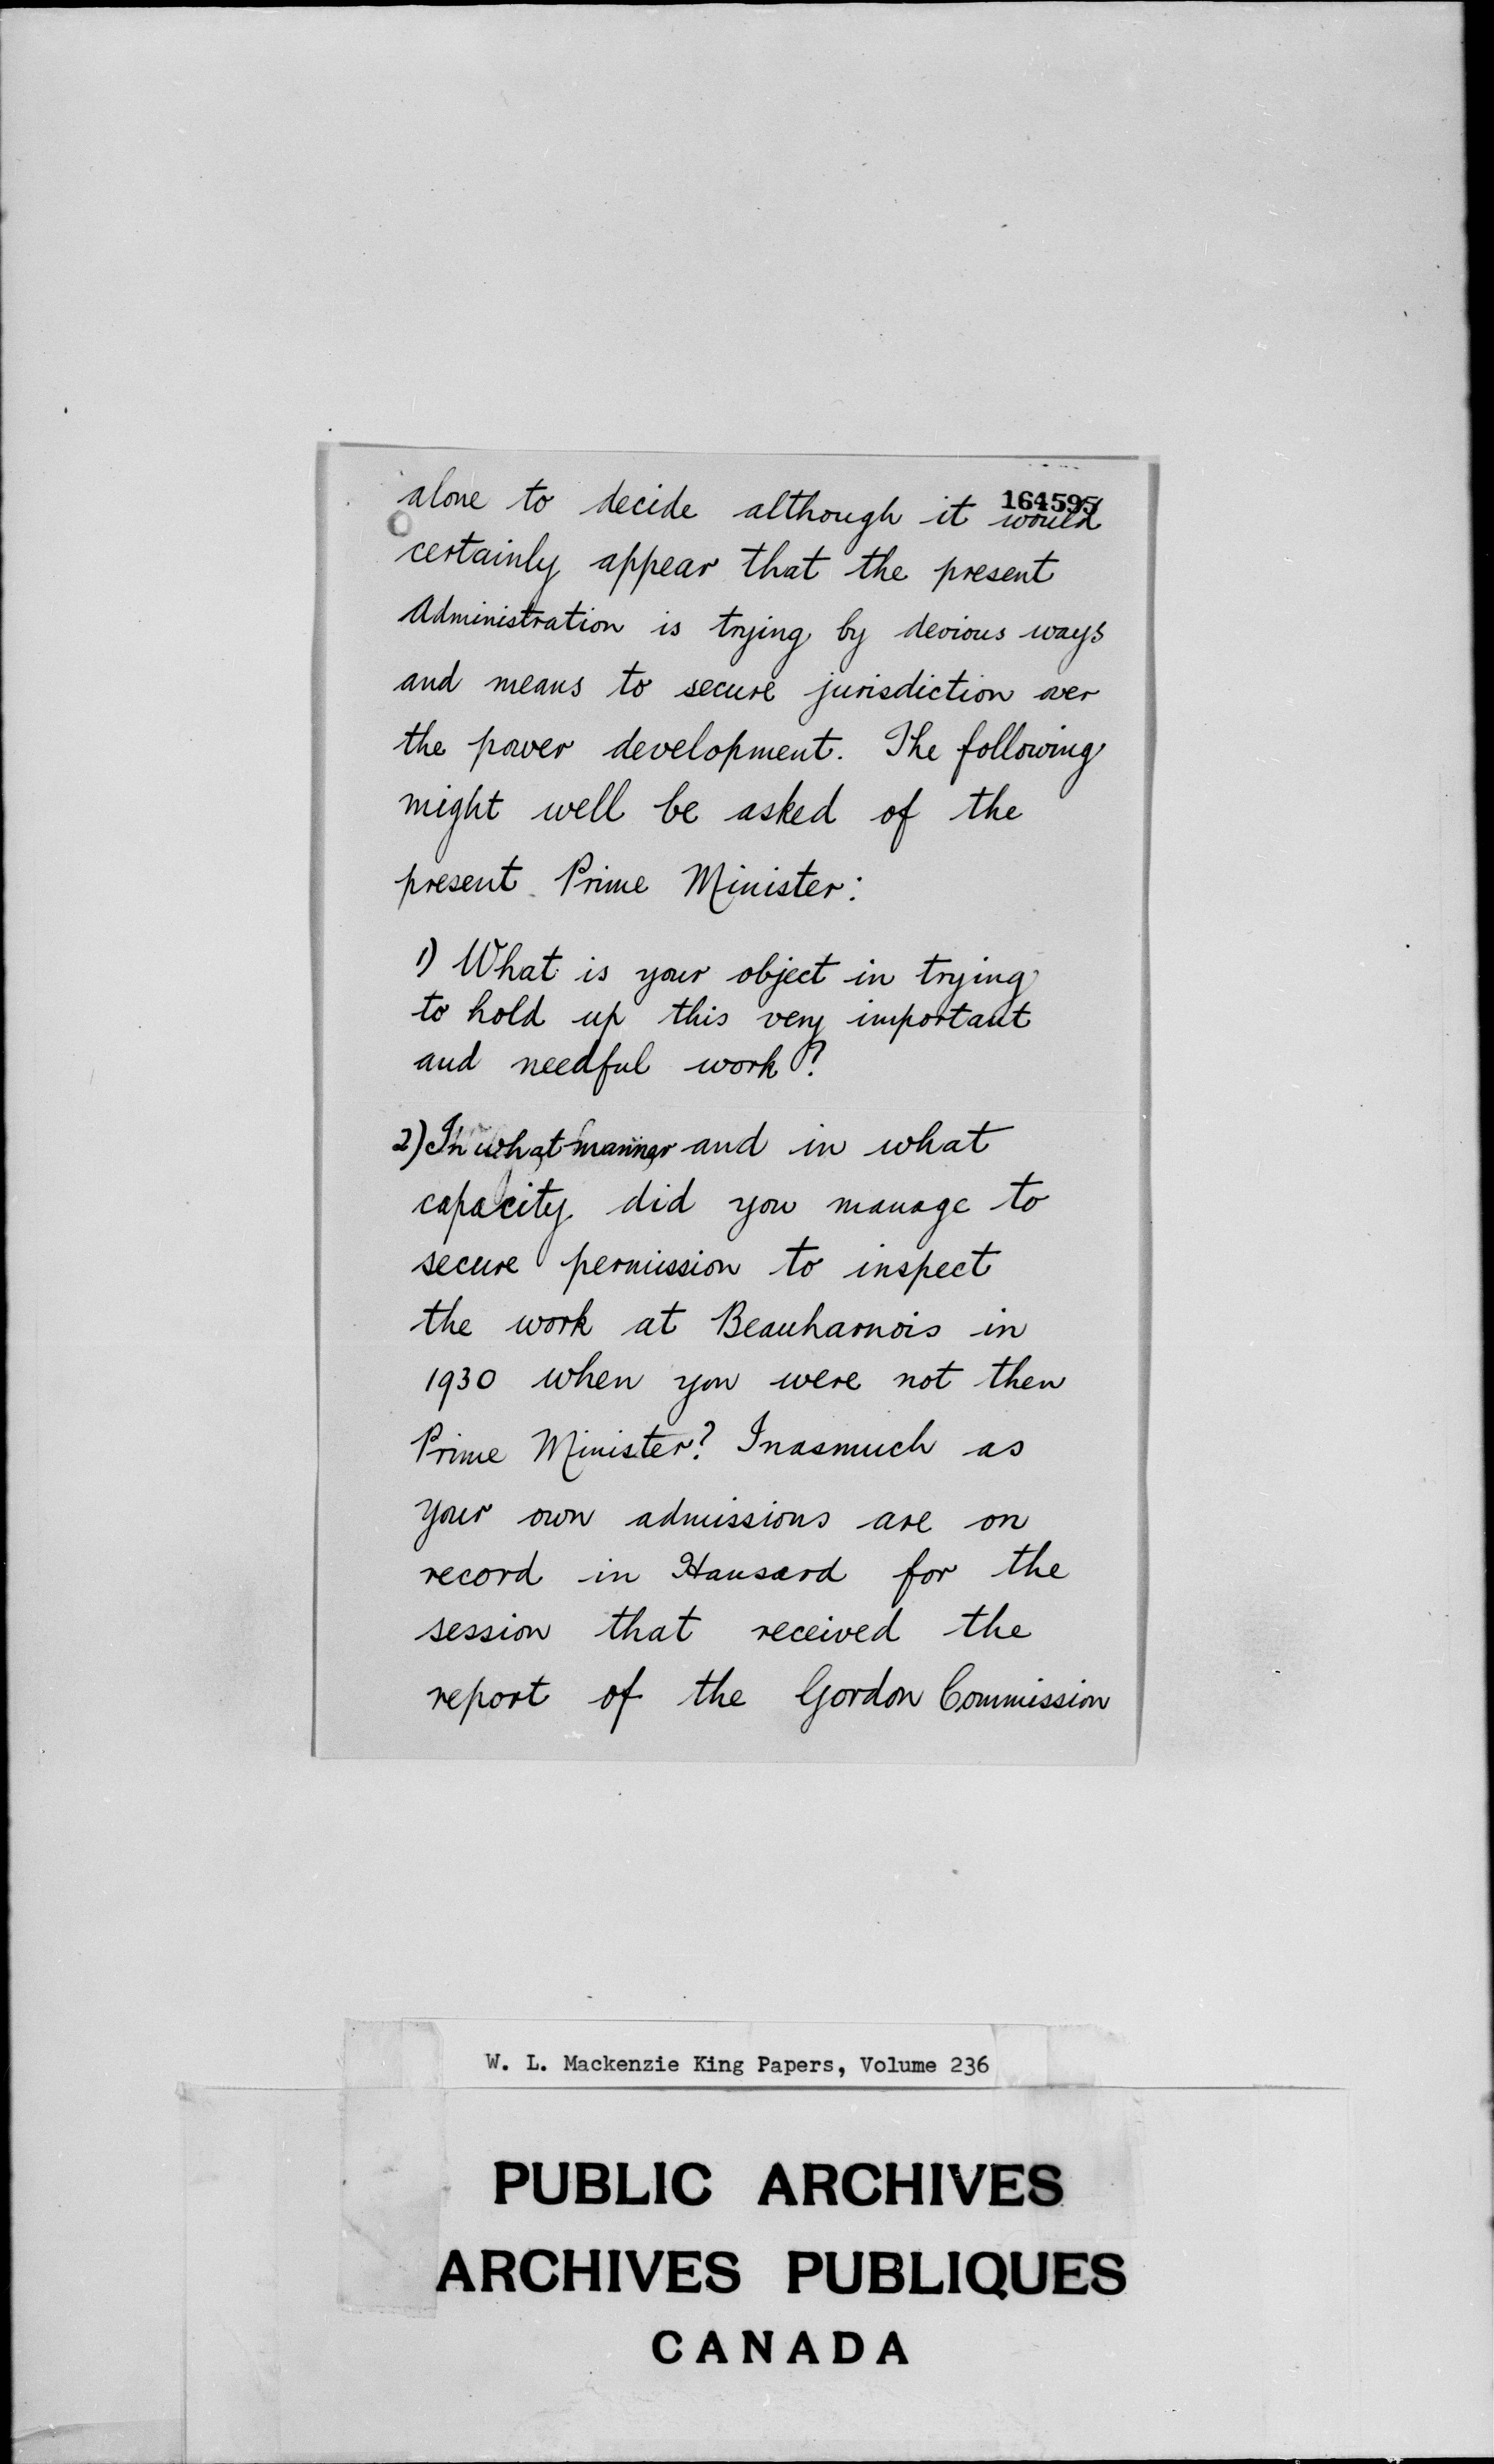 164595
alone to decide although it would
certainly appear that the present
Administration is trying by devious ways
and means to secure jurisdiction over
the power development. The following
might well be asked of the
present Prime Minister:
1) What is your object in trying
to hold up this very important
and needful work?
2) In what manner and in what
capacity did you manage to
secure permission to inspect
the work at Beauharnois in
1930 when you were not then
Prime Minister? Inasmuch as
your own admissions are on
record in Hansard for the
session that received the
report of the Gordon Commission
W. L. Mackenzie King Papers, Volume 236
PUBLIC ARCHIVES
ARCHIVES PUBLIQUES
CANADA